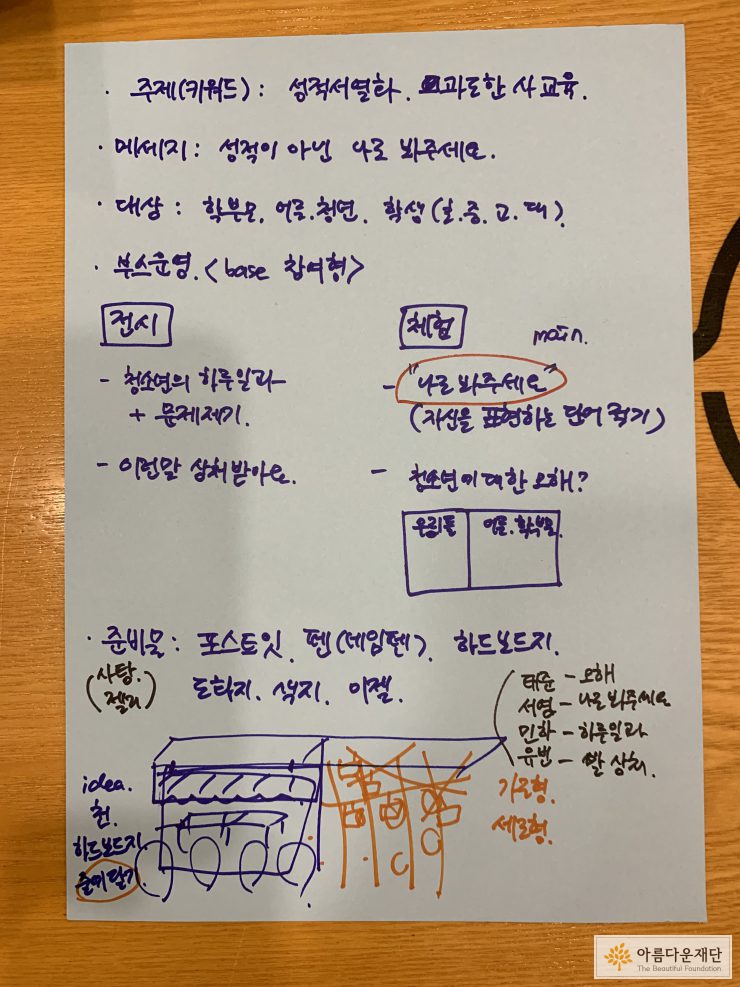 · 주제(키워드) : 성적서열화. 과도한 사교육.
· 메세지 : 성적이 아닌 나로 봐주세요.
· 대상 : 학부모, 어른.청년. 학생(초.중.고.대).
· 부스운영. <base 참여형>
전시
- 청소년의 하루일과
+ 문제제기.
- 이런말 상처받아요.
체험
main.
- "나로봐주세요"
(자신을 표현하는 단어 적기)
- 청소년에 대한 오해?
우리들
어른.학부모.
· 준비물 : 포스트잇. 펜(네임펜). 하드보드지.
도화지. 색지. 이젤.
(사탕.
젤리)
태준 - 오해
서영 - 나로봐주세요
민하 - 하루일과
유빈 - 말 상처.
idea.
천.
하드보드지
줄에달기
가로형.
세로형.
아름다운재단
The Beautiful Foundation